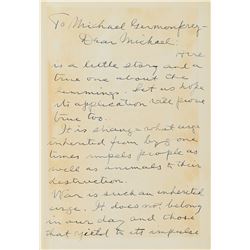 To Michael Germonprez-
Dear Michael:
Here
is a little story and a
true one about the
lemmings. Let us hope
its application will prove
true too.
It is strange what urge
inherited from by gone
times impels people as
well as animals to their
destruction.
War is such an inherited
urge. It does not belong
in our day and those
that yield to its impulse